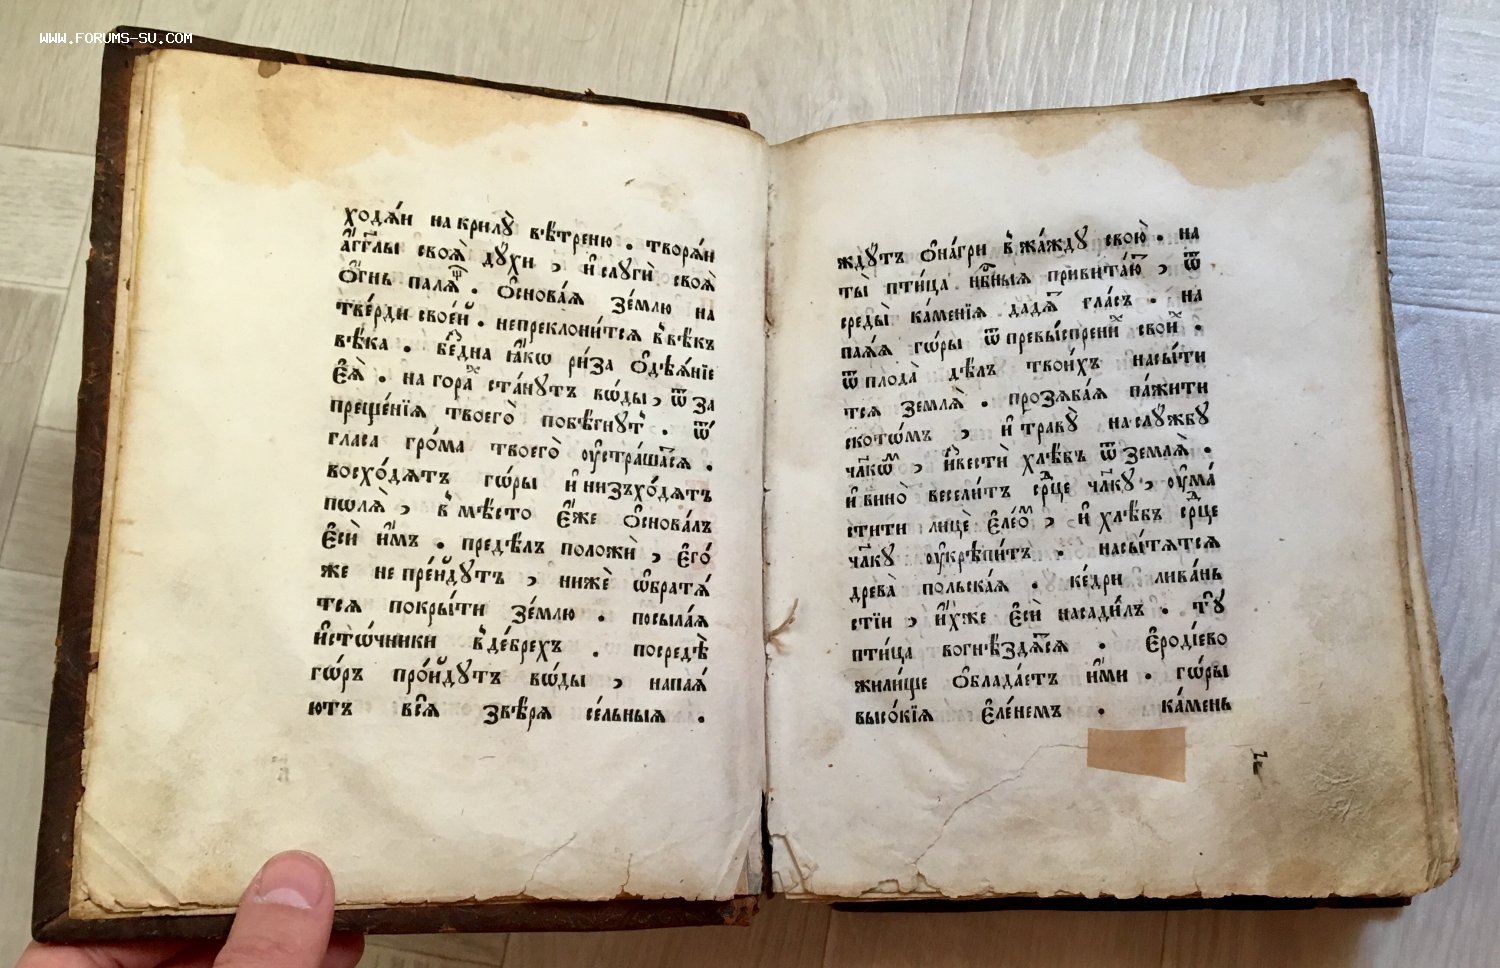 WWW.FORUMS-SU.COM
ходѧ́и на крилꙋ̀ вѣ́треню . творѧ́и
а҆́гг҃лы своѧ̀ дꙋ́хи , и҆ слꙋгѝ своѧ̀
ѻ҆́гнь палѧⷳ҇ . ѻ҆снова́ѧ зе́млю на
тве́рди свое́й . непреклони́тсѧ в̾вѣ́къ
вѣ́ка . бе́здна ꙗ҆́кѡ ри́за ѻ҆дѣѧ́нїе
є҆ѧ̀ . на гора́ⷯ ста́нꙋтъ вѡ́ды , ѿ за
преще́нїѧ твоего̀ побѣ́гнꙋт̾ . ѿ
гласа гро́ма твоего̀ ᲂу҆страша́тⷭ҇ѧ .
восхо́дѧтъ гѡ́ры и҆ низъхо́дѧтъ
пѡлѧ̀ , в̾ мѣ́сто є҆́же ѻ҆снова́лъ
є҆сѝ и҆̀мъ . предѣ́лъ положѝ , є҆го́
же не пре́йдꙋтъ , нижѐ ѡ҆братѧ́
тсѧ покры́ти зе́млю . посыла́ѧ
и҆стѡ́чники в̾ де́брехъ . посредѣ̀
гѡ́ръ про́йдꙋтъ вѡ́ды , напаѧ́
ютъ всѧ̑ ѕвѣ́рѧ се́льныѧ .
ждꙋтъ ѻ҆на́гри в̾ жа́ждꙋ свою̀ . на
ты̀ пти́ца нбⷭ҇ныѧ привита́ютⷮ , ѿ
среды̀ ка́менїѧ дадѧ́тⷮ гла́съ . на
паѧ́ѧ гѡ́ры ѿ превы́спрениⷯ свои́ⷯ .
ѿ плода̀ дѣ́лъ твои́хъ насы́ти
тсѧ землѧ̀ . прозѧба́ѧ па́жити
скотѡ́мъ , и҆ травꙋ̀ на слꙋ́жбꙋ
чл҃кѡⷨ , и҆звестѝ хлѣ́бъ ѿ землѧ̀ .
и҆ вино̀ весели́тъ срⷣце чл҃кꙋ , ᲂу҆ма́
стити лицѐ є҆ле́оⷨ , и҆ хлѣ́бъ срⷣце
чл҃кꙋ ᲂу҆крѣпи́тъ . насы́тѧтсѧ
древа̀ польска́ѧ . ке́дри лива́нь
стїи , и҆́хже є҆сѝ насади́лъ . тꙋ̑
пти́ца вогнѣздѧ́тⷭ҇ѧ . є҆роді́ево
жили́ще ѻ҆блада́етъ и҆́ми . гѡ́ры
высо́кїѧ є҆ле́немъ . ка́мень